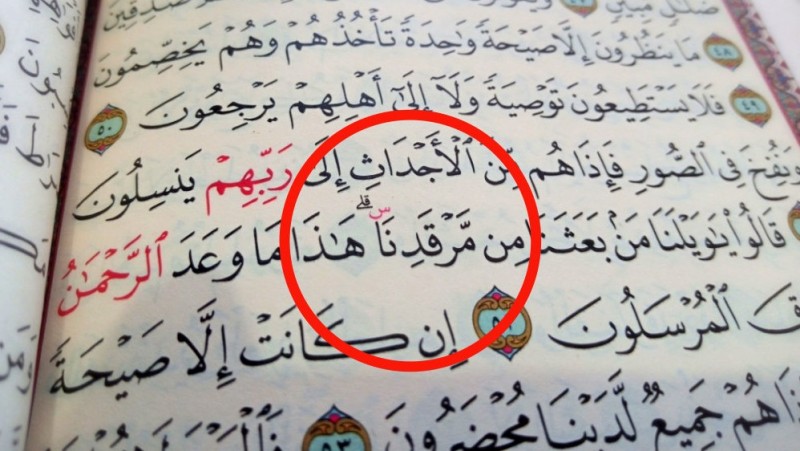 ضَلَٰلٍ مُّبِينٍ
٤٨ مَا يَنظُرُونَ إِلَّا صَيْحَةً وَٰحِدَةً تَأْخُذُهُمْ وَهُمْ يَخِصِّمُونَ
٤٩ فَلَا يَسْتَطِيعُونَ تَوْصِيَةً وَلَآ إِلَىٰٓ أَهْلِهِمْ يَرْجِعُونَ ٥٠
وَنُفِخَ فِى ٱلصُّورِ فَإِذَا هُم مِّنَ ٱلْأَجْدَاثِ إِلَىٰ رَبِّهِمْ يَنسِلُونَ
قَالُوا۟ يَٰوَيْلَنَا مَنۢ بَعَثَنَا مِن مَّرْقَدِنَاۜ ۗ هَٰذَا مَا وَعَدَ ٱلرَّحْمَٰنُ
ٱلْمُرْسَلُونَ إِن كَانَتْ إِلَّا صَيْحَةً
هُمْ جَمِيعٌ لَّدَيْنَا مُحْضَرُونَ ٥٣